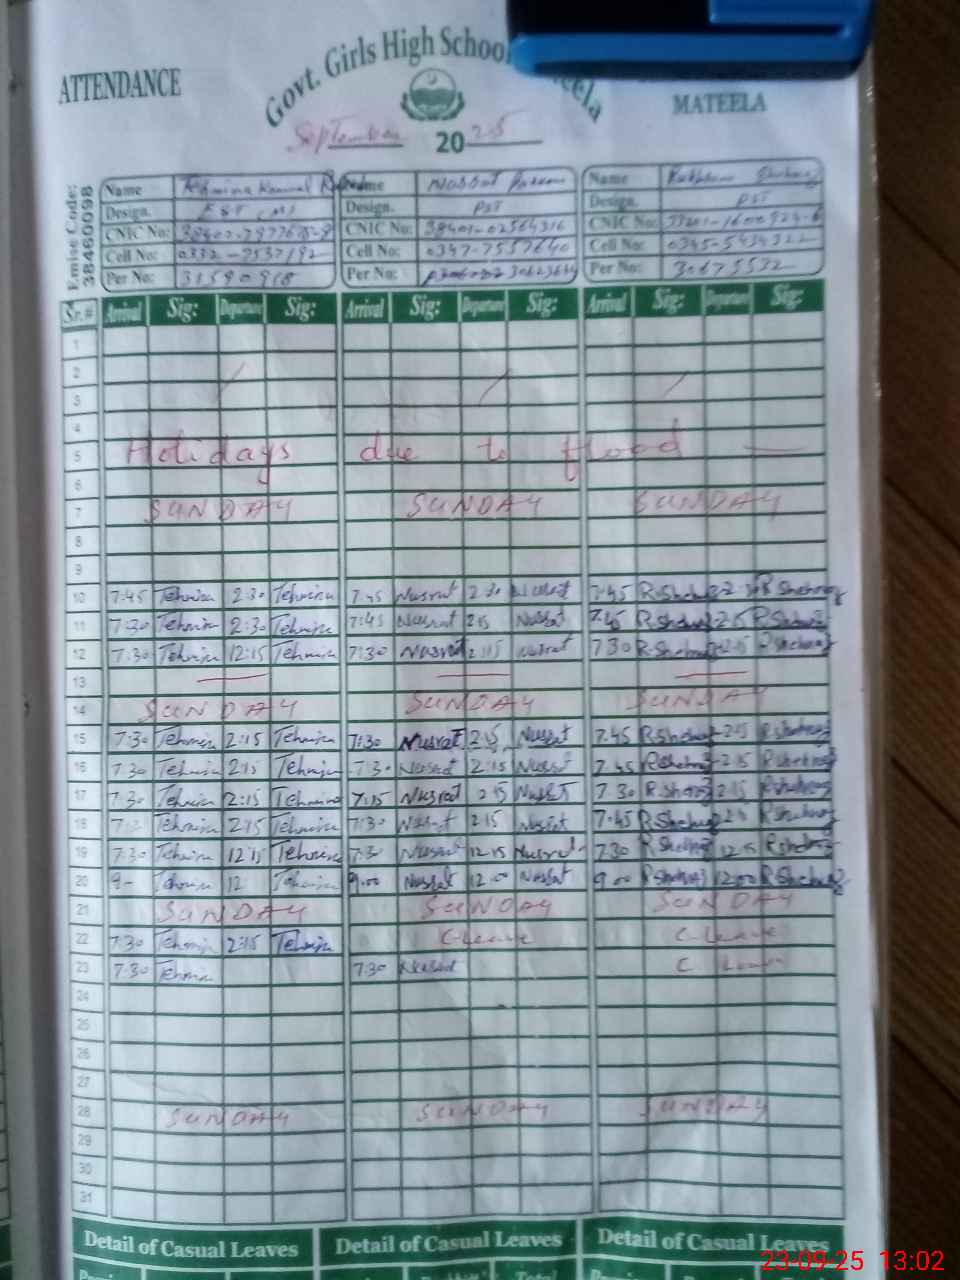 ATTENDANCE
Govt. Girls High School
MATEELA
September 2025
Emise Code: 38460098
Name Name Nusrat Name
Design. EST Design. PST Design. PST
CNIC No: CNIC No: 38401-02564316 CNIC No:
Cell No: 0332-7537192 Cell No: 0347-7557640 Cell No:
Per No: 31590918 Per No: Per No: 30675532
Sr.# Arrival Sig: Departure Sig: Arrival Sig: Departure Sig: Arrival Sig: Departure Sig:
1
2
3
4
5 Holidays due to flood
6
7 SUNDAY SUNDAY SUNDAY
8
9
10 7:45 Tehmina 2:30 Tehmina 7:45 Nusrat 2:30 Nusrat 7:45 R.Shehnaz 2:30 R Shehnaz
11 7:30 Tehmina 2:30 Tehmina 7:45 Nusrat 2:15 Nusrat 7:45 R.Shehnaz 2:15 R Shehnaz
12 7:30 Tehmina 12:15 Tehmina 7:30 Nusrat 12:15 Nusrat 7:30 R.Shehnaz 12:15 R Shehnaz
13
14 SUNDAY SUNDAY SUNDAY
15 7:30 Tehmina 2:15 Tehmina 7:30 Nusrat 2:15 Nusrat 7:45 R.Shehnaz 2:15 R.Shehnaz
16 7:30 Tehmina 2:15 Tehmina 7:30 Nusrat 2:15 Nusrat 7:45 R.Shehnaz 2:15 R.Shehnaz
17 7:30 Tehmina 2:15 Tehmina 7:15 Nusrat 2:15 Nusrat 7:30 R.Shehnaz 2:15 R.Shehnaz
18 Tehmina 2:15 Tehmina 7:30 Nusrat 2:15 Nusrat 7:45 R.Shehnaz R.Shehnaz
19 7:30 Tehmina 12:15 Tehmina 7:30 Nusrat 12:15 Nusrat 7:30 R.Shehnaz 12:15 R.Shehnaz
20 9- Tehmina 12 Tehmina 9:00 Nusrat 12:00 Nusrat 9:00 R.Shehnaz 12:00 R.Shehnaz
21 SUNDAY SUNDAY SUNDAY
22 7:30 Tehmina 2:15 Tehmina C-Leave C-Leave
23 7:30 Tehmina 7:30 Nusrat C Leave
24
25
26
27
28 SUNDAY SUNDAY SUNDAY
29
30
31
Detail of Casual Leaves Detail of Casual Leaves Detail of Casual Leaves
23-09-25 13:02